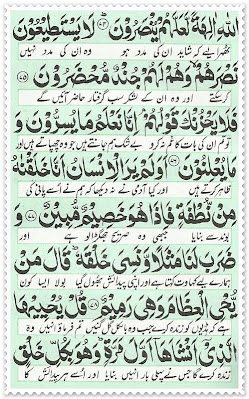 اللهِ اٰلِهَةً لَّعَلَّهُمْ يُنْصَرُوْنَ ﴿۷۴﴾ لَا يَسْتَطِيْعُوْنَ
ٹھہرا لیے کہ شاید ان کی مدد ہو وہ ان کی مدد نہیں
نَصْرَهُمْ وَهُمْ لَهُمْ جُنْدٌ مُّحْضَرُوْنَ ﴿۷۵﴾
کرسکتے اور وہ ان کے لشکر سب گرفتار حاضر آئیں گے
فَلَا يَحْزُنْكَ قَوْلُهُمْ اِنَّا نَعْلَمُ مَا يُسِرُّوْنَ وَ
تو تم ان کی بات کا غم نہ کرو بے شک ہم جانتے ہیں جو وہ چھپاتے ہیں اور
مَا يُعْلِنُوْنَ ﴿۷۶﴾ اَوَلَمْ يَرَ الْاِنْسَانُ اَنَّا خَلَقْنٰهُ
ظاہر کرتے ہیں اور کیا آدمی نے نہ دیکھا کہ ہم نے اسے پانی کی
مِنْ نُّطْفَةٍ فَاِذَا هُوَ خَصِيْمٌ مُّبِيْنٌ ﴿۷۷﴾ وَ
بوند سے بنایا جبھی وہ صریح جھگڑالو ہے اور
ضَرَبَ لَنَا مَثَلًا وَّنَسِيَ خَلْقَهٗ ؕ قَالَ مَنْ
ہمارے لیے کہاوت کہتا ہے اور اپنی پیدائش بھول گیا بولا ایسا کون
يُّحْيِ الْعِظَامَ وَهِيَ رَمِيْمٌ ﴿۷۸﴾ قُلْ يُحْيِيْهَا
ہے کہ ہڈیوں کو زندہ کرے جب وہ بالکل گل گئیں تم فرماؤ انہیں وہ
الَّذِيْٓ اَنْشَاَهَآ اَوَّلَ مَرَّةٍ ؕ وَهُوَ بِكُلِّ خَلْقٍ
زندہ کرے گا جس نے پہلی بار انہیں بنایا اور اسے ہر پیدائش کا